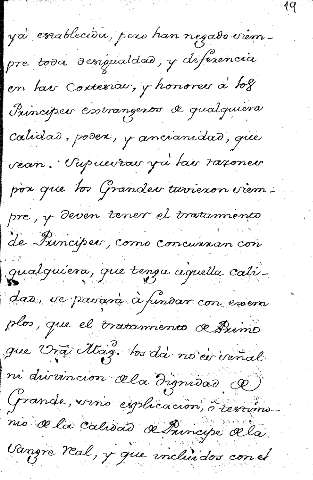 19
yá establecida, pero han negado siem-
pre toda desigualdad, y diferencia
en las Cortesias, y honores á los
Principes estrangeros de qualquiera
calidad, poder, y ancianidad, que
sean. Supuestas yá las razones
por que los Grandes tuvieron siem-
pre, y deven tener el tratamiento
de Principes, como concurran con
qualquiera, que tenga aquella cali-
dad, se pasará á fundar con exem
plos, que el tratamiento de Primo
que Vrã Magd. los dá no es señal
ni distincion de la Dignidad de
Grande, sino explicacion, ó testimo-
nio de la calidad de Principe de la
Sangre real, y que incluidos con el